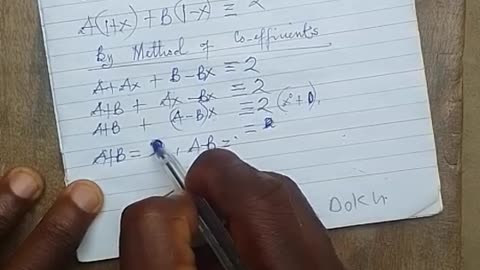 A(1+x) + B(1-x) ≡ 2
By Method of Co-efficients
A+Ax + B-Bx ≡ 2
A+B + Ax-Bx ≡ 2
A+B + (A-B)x ≡ 2
A+B = , A-B =
DokH